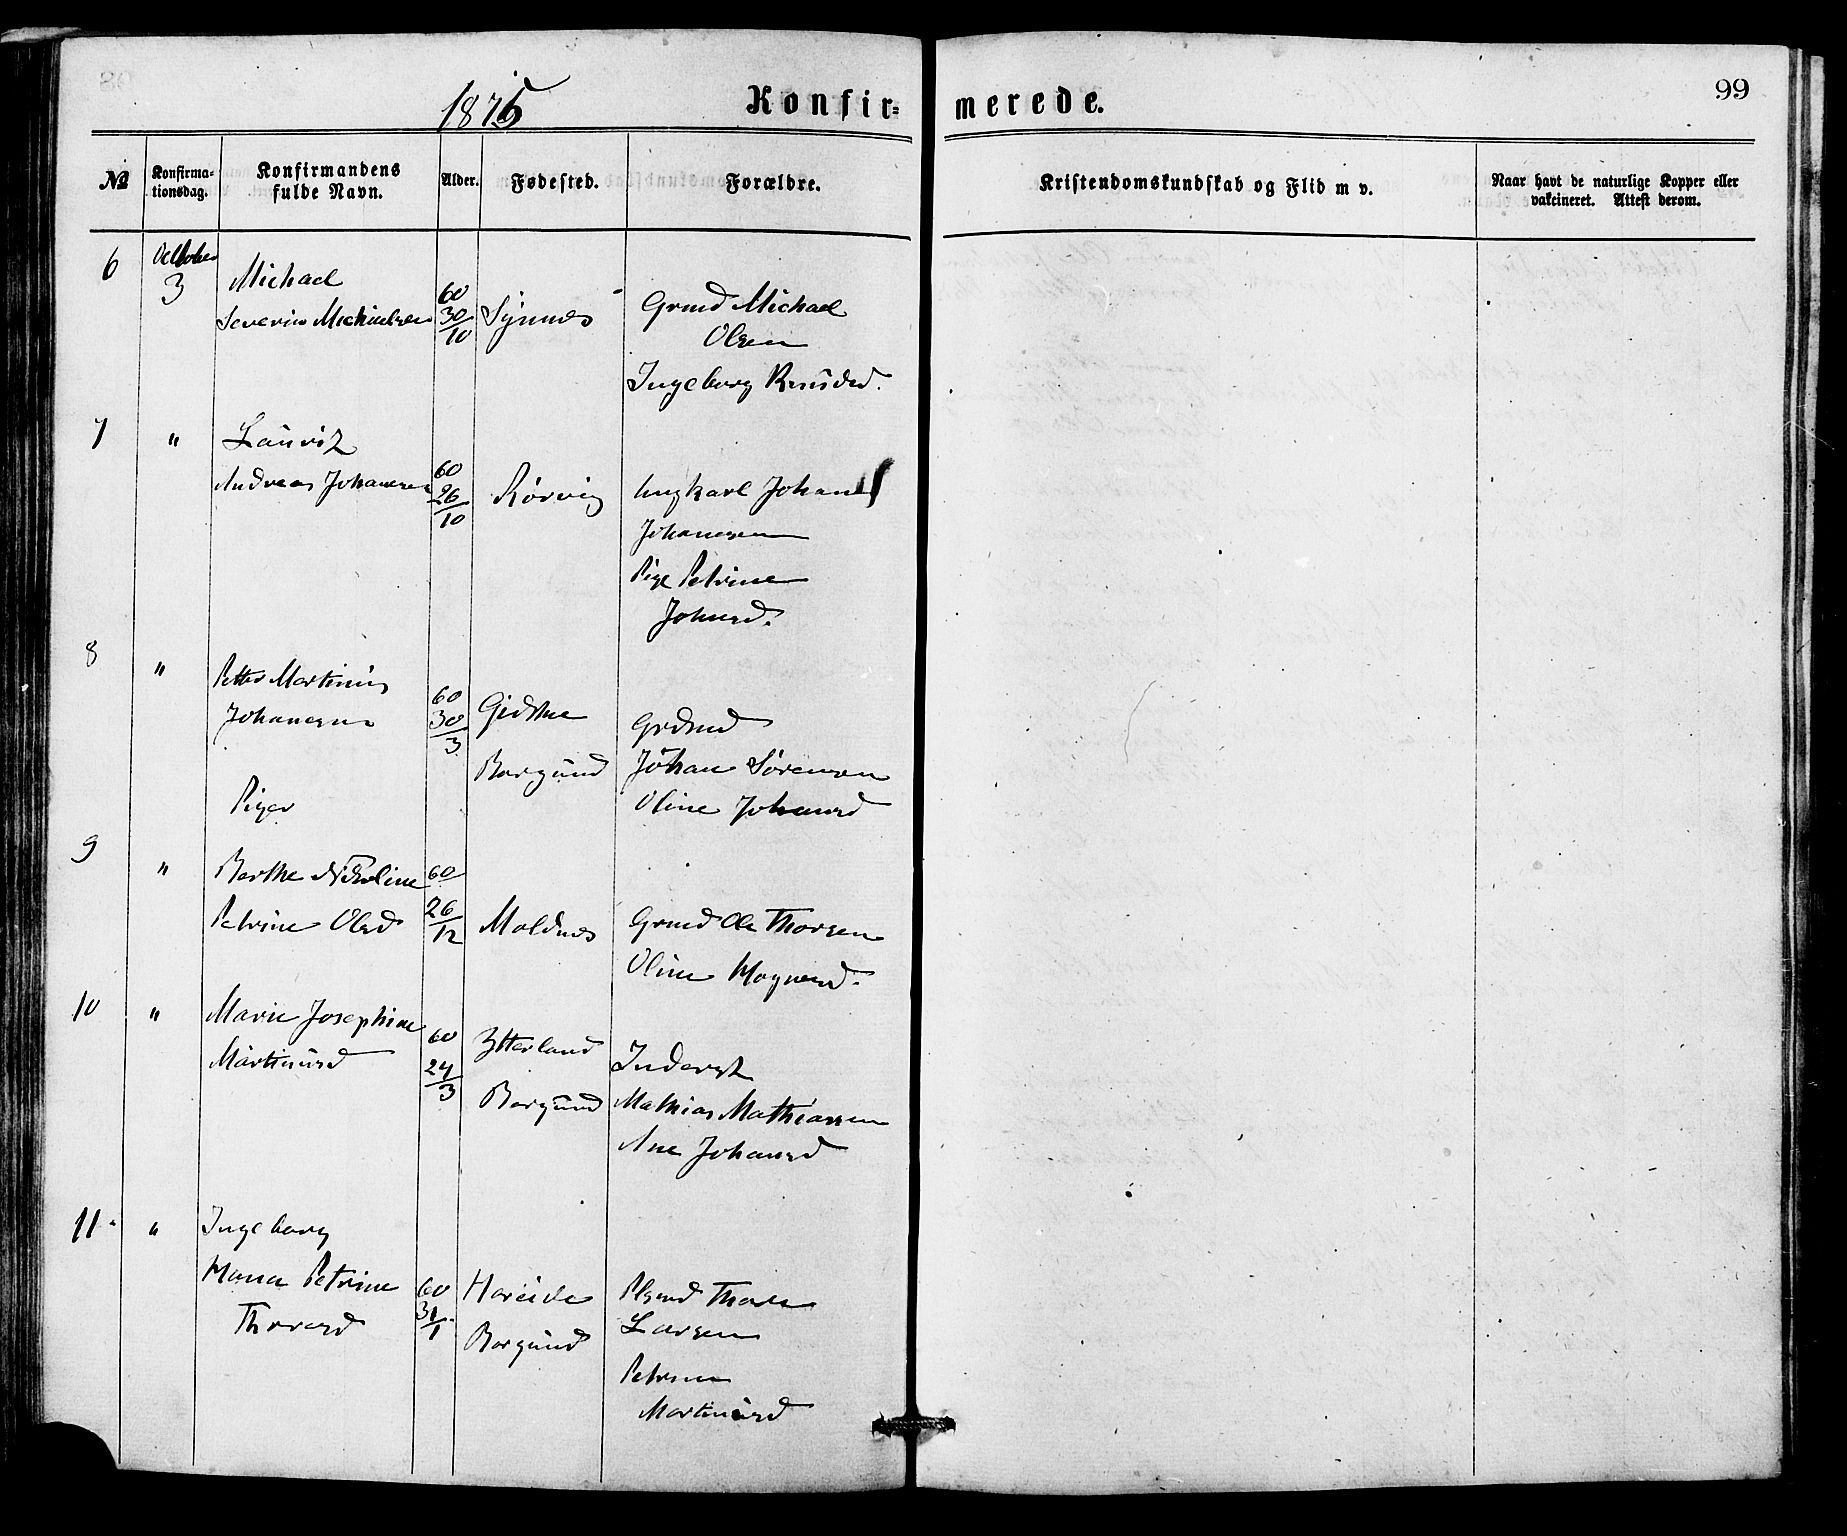 1875 Konfir= merede. 99
№ Konfirma- tionsdag. Konfirmandens fulde Navn. Alder. Fødested. Forældre. Kristendomskundskab og Flid m v. Naar havt de naturlige Kopper eller vakcineret. Attest derom.
6 October 3 Michael
Severin Michaelsen 60 30/10 Synnes Grmd Michael
Olsen
Ingeborg Knudsd.
7 " Lauritz
Andreas Johanesen 60 26/10 Rørvig Ungkarl Johan
Johanesen
Pige Petrine
Johnsd.
8 " Petter Martinus
Johanesen 60 30/3 Gidske Grdmd
Borgund Johan Sørensen
Piger Oline Johansd
9 " Berthe Nikoline 60
Petrine Olsd 26/12 Moldnes Grmd Ole Thorsen
Oline Mognesd.
10 " Marie Josephine 60 Ytterland
Martinusd 24/3 Inderst
Borgund Mathias Mathiassen
Ane Johansd
11 " Ingeborg
Hana Petrine 60 Hareide Plsmd
Thoresd 31/1 Borgund Larsen
Petrine
Martinusd